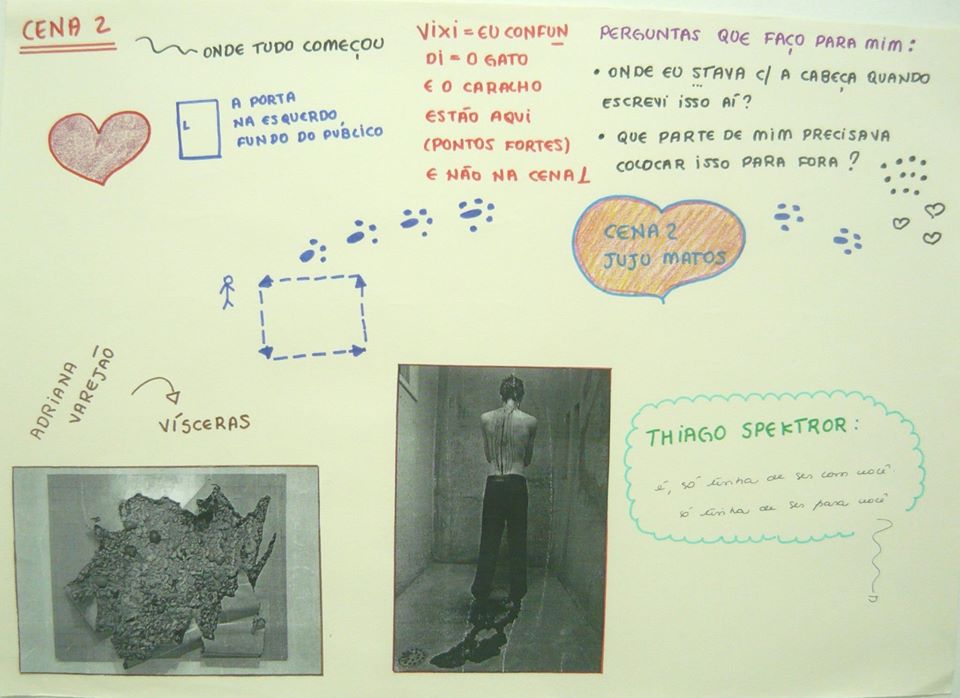 CENA 2
ONDE TUDO COMEÇOU
A PORTA
NA ESQUERDO,
FUNDO DO PÚBLICO
L
VIXI = EU CONFUN
DI = O GATO
E O CARALHO
ESTÃO AQUI
(PONTOS FORTES)
E NÃO NA CENA 1
PERGUNTAS QUE FAÇO PARA MIM:
• ONDE EU STAVA C/ A CABEÇA QUANDO
ESCREVI ISSO AÍ?
• QUE PARTE DE MIM PRECISAVA
COLOCAR ISSO PARA FORA?
CENA 2
JUJU MATOS
ADRIANA
VAREJÃO
VÍSCERAS
THIAGO SPEKTROR:
é, só tinha de ser com você
só tinha de ser para você